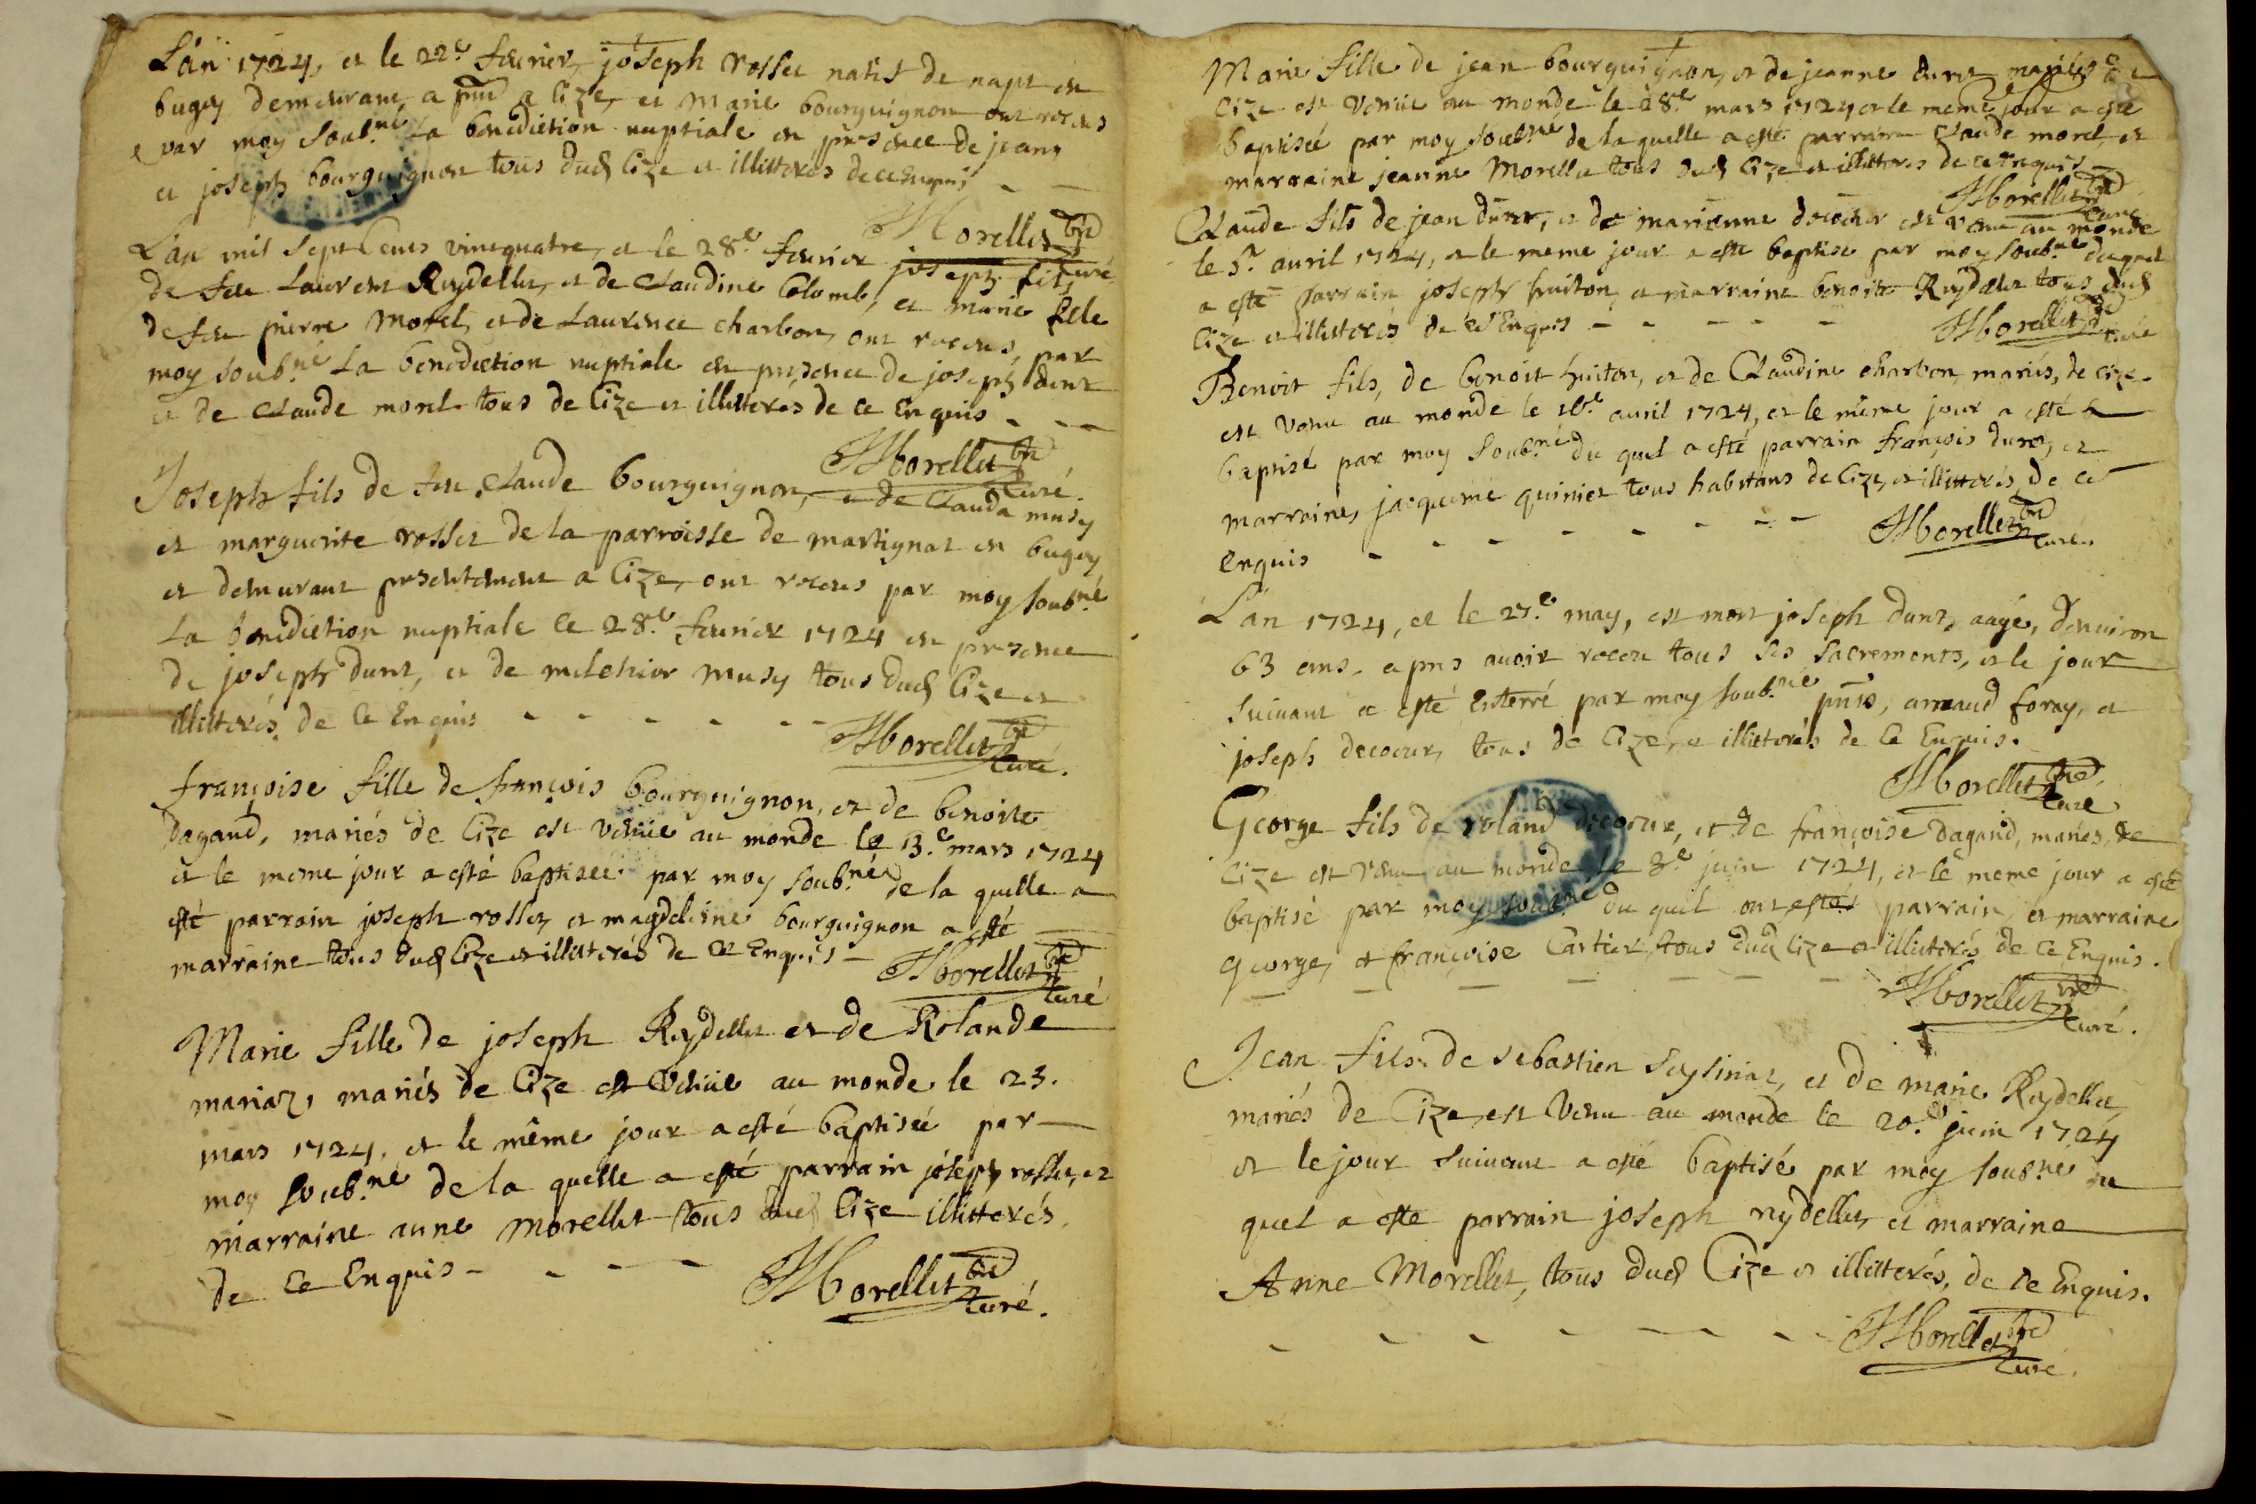 L'an 1724, et le 22e feurier, joseph rosset natif de napt en
bugey demeurant, a pnt a Cize, et Marie bourguignon ont receus
par moy soubné La benediction nuptiale en presence de jean
et joseph bourguignon tous dud Cize et illitterés de ce Enquis
Morellet bre
Curé
L'an mil sept Cents vintquatre, et le 28e feurier joseph fils
de feu Laurent Reydellet, et de Claudine Colomb, et marie fille
de feu pierre Morel, et de Laurence charbon, ont receus, par
moy soubné La benediction nuptiale en presence de joseph duret
et de Claude morel tous de Cize et illitteres de ce Enquis
Morellet bre
Curé.
Joseph fils de feu Claude bourguignon, et de Clauda musy
et marguerite rosset de la parroisse de martignat en bugey
et demeurant presentement a Cize, ont receus par moy soubné
La benediction nuptiale le 28e feurier 1724 en presence
de joseph duret, et de melchior musy tous dud Cize et
illitterés de ce Enquis
Morellet bre
Curé.
françoise fille de françois bourguignon, et de benoite
Dagand, mariés de Cize est venüe au monde le 13e mars 1724
et le meme jour a esté baptisée par moy soubné de la quelle a
esté parrain joseph rosset, et magdeleine bourguignon a esté
marraine tous dud Cize et illitterés de ce Enquis
Morellet bre
Curé
Marie fille de joseph Reydellet et de Rolande
mariaz, mariés de Cize est venüe au monde le 23.
mars 1724, et le même jour a esté baptisée par
moy soubné de la quelle a esté parrain joseph rosset, et
marraine anne morellet tous dud Cize illitterés,
de ce Enquis
Morellet bre
Curé.
Marie fille de jean bourguignon, et de jeanne duret mariés de
Cize est venüe au monde le 28e mars 1724 et le meme jour a esté
baptisée par moy soubné de la quelle a esté parrain Claude morel et
marraine jeanne Morellet tous dud Cize et illitteres de ce enquis
Morellet bre
Curé
Claude fils de jean duret, et de marianne decoeur est venu au monde
le 5e auril 1724, et le meme jour a esté baptisé par moy soubné duquel
a esté parrain joseph huiton, et marraine benoite Reydellet tous dud
Cize et illitterés de ce Enquis
Morellet bre
Curé
Benoit fils, de benoit huiton, et de Claudine charbon mariés, de Cize
est venu au monde le 16e auril 1724, et le même jour a esté
baptisé par moy soubné du quel a esté parrain françois duret, et
marraine, jacqueme quinier tous habitans de Cize, et illitterés de ce
enquis
Morellet bre
Curé.
L'an 1724, et le 27e may, est mort joseph duret, aagé, d'enuiron
63 ans, apres auoir receu tous ses sacrements, et le jour
suiuant a esté Enterré par moy soubné pnts, arnaud foray, et
joseph decoeur, tous de Cize, et illitterés de ce Enquis.
Morellet bre
Curé
George fils de roland decoeur, et de françoise Dagand, mariés, de
Cize est venu au monde le 3e juin 1724, et le meme jour a esté
baptisé par moy soubné du quel ont estés parrain, et marraine
George, et françoise Cartier, tous dud Cize et illitterés de ce Enquis.
Morellet bre
Curé.
Jean fils de sebastien Seysiriat, et de marie Reydellet
mariés de Cize, est venu au monde le 20e juin 1724
et le jour suiuant a esté baptisé par moy soubné du
quel a esté parrain joseph reydellet, et marraine
Anne Morellet, tous dud Cize et illitterés, de ce Enquis.
Morellet bre
Curé.